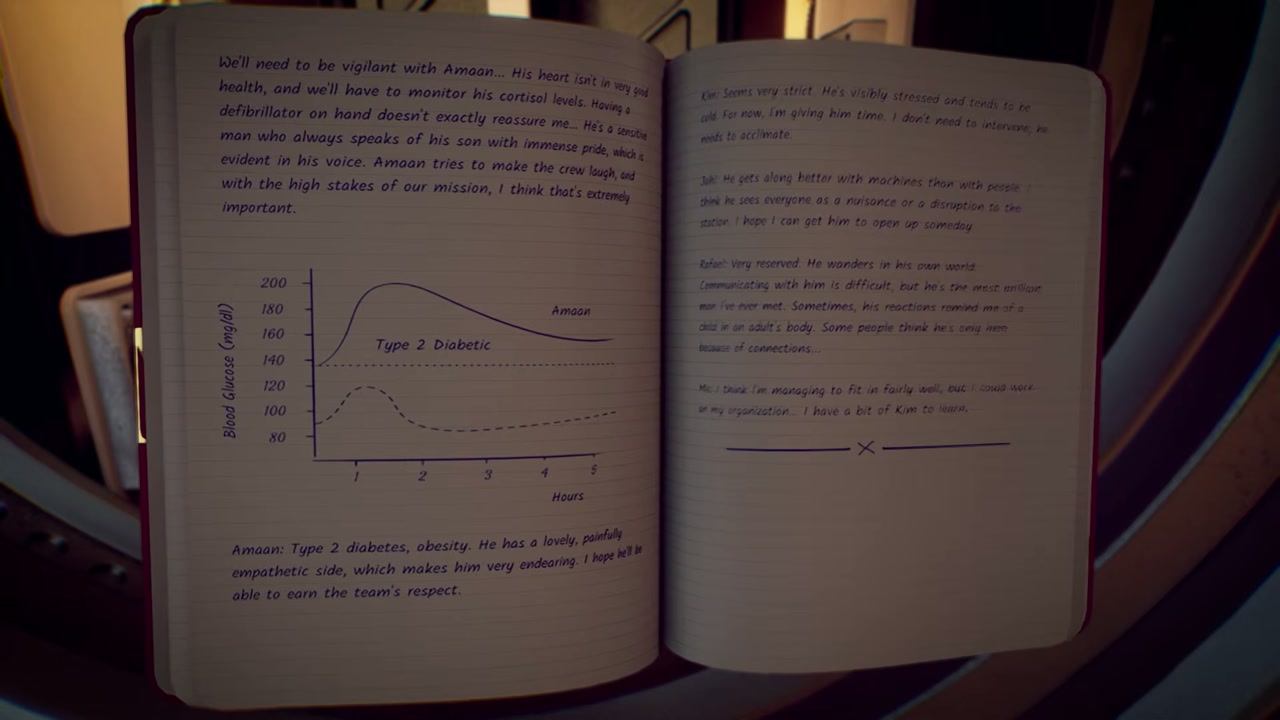 We'll need to be vigilant with Amaan... His heart isn't in very good
health, and we'll have to monitor his cortisol levels. Having a
defibrillator on hand doesn't exactly reassure me... He's a sensitive
man who always speaks of his son with immense pride, which is
evident in his voice. Amaan tries to make the crew laugh, and
with the high stakes of our mission, I think that's extremely
important.
Blood Glucose (mg/dl)
200
180
160
140
120
100
80
Amaan
Type 2 Diabetic
1 2 3 4 5
Hours
Amaan: Type 2 diabetes, obesity. He has a lovely, painfully
empathetic side, which makes him very endearing. I hope he'll be
able to earn the team's respect.
Kim: Seems very strict. He's visibly stressed and tends to be
cold. For now, I'm giving him time. I don't need to intervene, he
needs to acclimate.
He gets along better with machines than with people. I
think he sees everyone as a nuisance or a disruption to the
station. I hope I can get him to open up someday.
Rafael: Very reserved. He wanders in his own world.
Communicating with him is difficult, but he's the most brilliant
man I've ever met. Sometimes, his reactions remind me of a
child in an adult's body. Some people think he's only here
because of connections...
Me: I think I'm managing to fit in fairly well, but I could work
on my organization... I have a bit of Kim to learn.